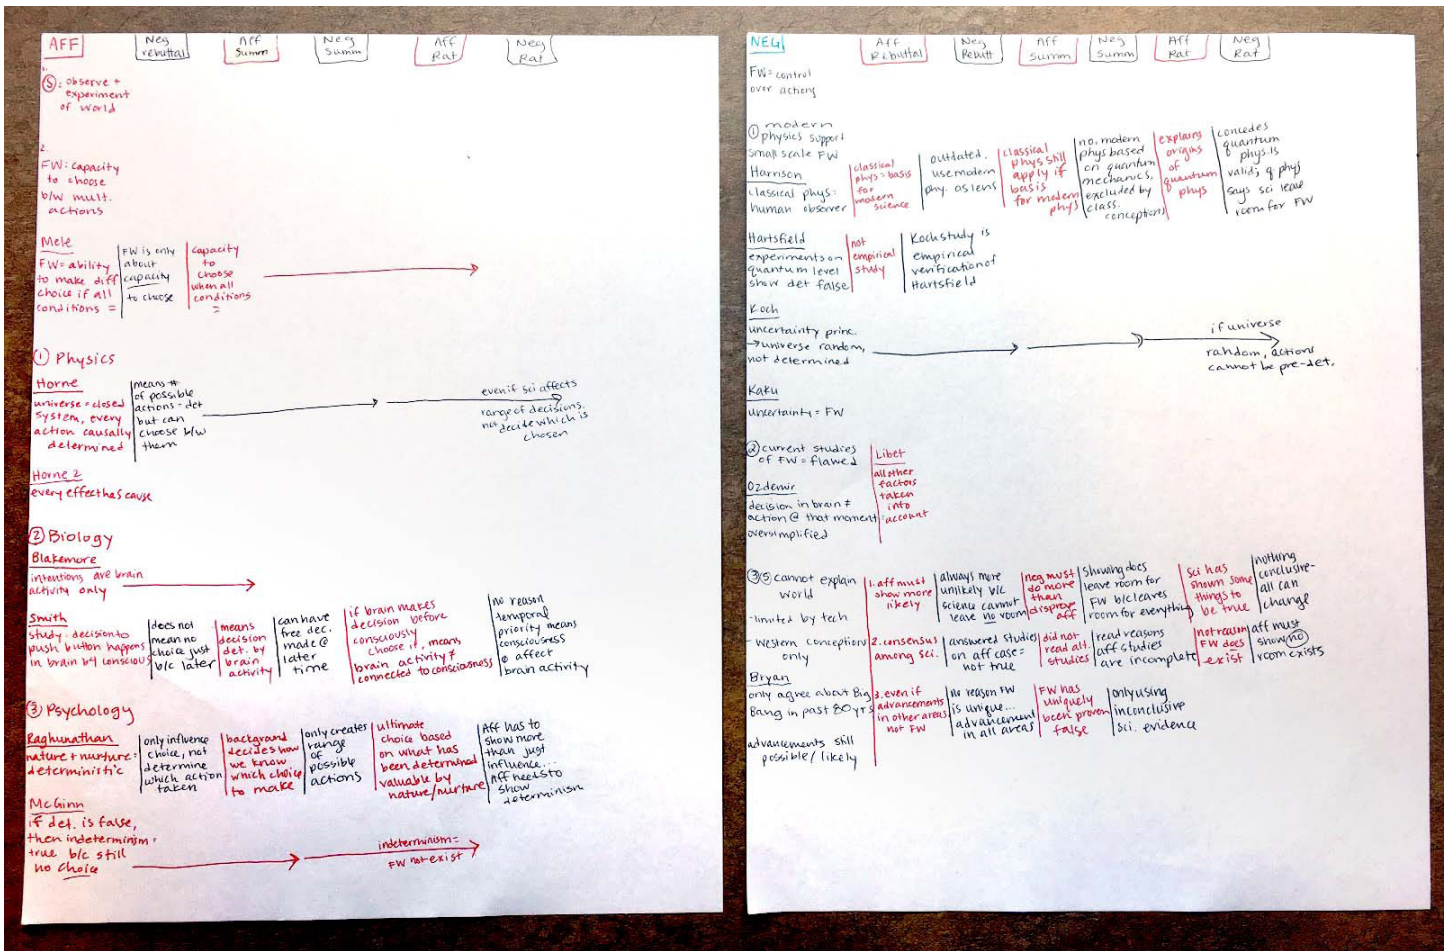 AFF
Neg
rebuttal
Aff
Summ
Neg
Summ
Aff
Rat
Neg
Rat
1.
Ⓢ: observe +
experiment
of world
2.
FW: capacity
to choose
b/w mult.
actions
Mele
FW = ability
to make diff
choice if all
conditions =
FW is only
about
capacity
to choose
capacity
to
choose
when all
conditions
=
① Physics
Horne
universe = closed
system, every
action causally
determined
means #
of possible
actions - det
but can
choose b/w
them
even if sci affects
range of decisions,
not decide which is
chosen
Horne 2
every effect has cause
② Biology
Blakemore
intentions are brain
activity only
Smith
study: decision to
push button happens
in brain b4 conscious
does not
mean no
choice just
b/c later
means
decision
det. by
brain
activity
can have
free dec.
made @
later
time
if brain makes
decision before
consciously
choose it, means
brain activity ≠
connected to consciousness
no reason
temporal
priority means
consciousness
affect
brain activity
③ Psychology
Raghunathan
nature + nurture =
deterministic
only influence
choice, not
determine
which action
taken
background
decides how
we know
which choice
to make
only creates
range
of
possible
actions
ultimate
choice based
on what has
been determined
valuable by
nature/nurture
Aff has to
show more
than just
influence...
Aff needs to
show
determinism
McGinn
if det. is false,
then indeterminism =
true b/c still
no choice
indeterminism =
FW not exist
NEG
Aff
Rebuttal
Neg
Rebutt
Aff
Summ
Neg
Summ
Aff
Rat
Neg
Rat
FW = control
over actions
① modern
physics support
small scale FW
Harrison
classical phys =
human observer
classical
phys = basis
for
modern
science
outdated.
use modern
phy. as lens
classical
phys still
apply if
basis
for modern
phys
no, modern
phys based
on quantum
mechanics,
excluded by
class.
conceptions
explains
origins
of
quantum
phys
concedes
quantum
phys is
valid; q phys
says sci leave
room for FW
Hartsfield
experiments on
quantum level
show det false
not
empirical
study
Koch study is
empirical
verification of
Hartsfield
Koch
uncertainty princ.
→ universe random,
not determined
if universe
random, actions
cannot be pre-det.
Kaku
uncertainty = FW
② current studies
of FW = flawed
Ozdemir
decision in brain ≠
action @ that moment =
oversimplified
Libet
all other
factors
taken
into
account
③ Ⓢ cannot explain
world
- limited by tech
- Western conception
only
Bryan
only agree about Big
Bang in past 80 yrs
advancements still
possible/likely
1. aff must
show more
likely
always more
unlikely b/c
science cannot
leave no room
neg must
do more
than
disprove
aff
Showing does
leave room for
FW b/c leaves
room for everything
sci has
shown some
things to
be true
nothing
conclusive-
all can
change
2. consensus
among sci.
answered studies
on aff case =
not true
did not
read alt.
studies
read reasons
aff studies
are incomplete
not reason
FW does
exist
aff must
show no
room exists
3. even if
advancements
in other areas
not FW
no reason FW
is unique...
advancement
in all areas
FW has
uniquely
been proven
false
only using
inconclusive
sci. evidence